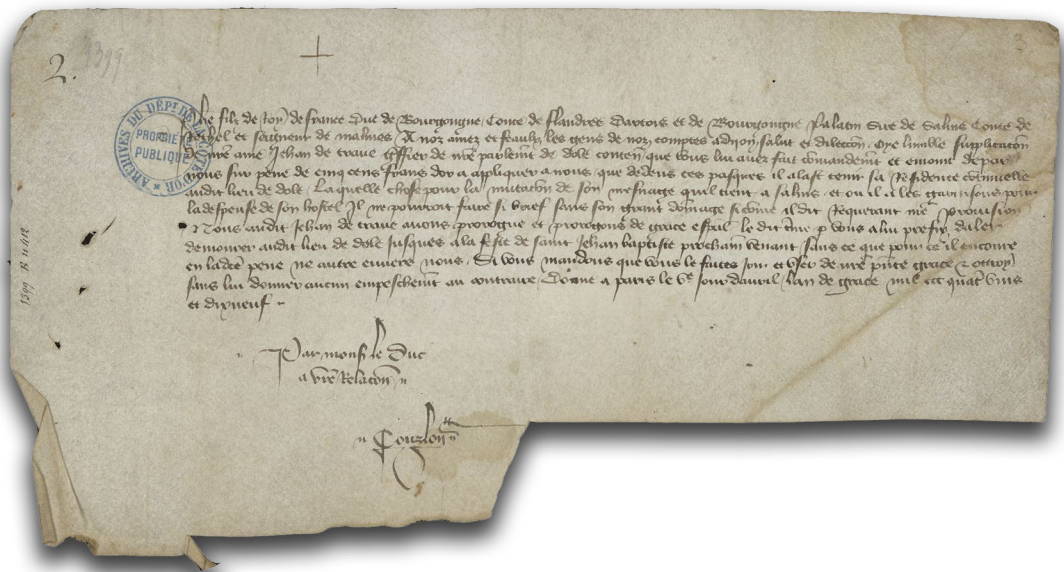 2.
1399
3
ARCHIVES DU DÉPT DE LA CÔTE D'OR
PROPRIÉTÉ
PUBLIQUE
filz de Roy de france Duc de Bourgongne, Conte de flandres Dartois et de Bourgongne Palatin Sire de Salins Conte de
Rethel et seigneur de malines, A noz amez et feaulx les gens de noz comptes a dijon, salut et dilection. Oye lumble supplication
de nre ame Jehan de trave greffier de nre parlemt de dole conten que vous lui avez fait commandemt et enioint de par
nous sur pene de cinq cens frans dor a appliquer a nous, que dedens ces pasques il alast tenir sa Residence continuelle
audit lieu de dole. La quelle chose pour la mutacion de son mesnaige quil tient a salins, et ou il a les garnisons pour
la despense de son hostel Il ne pourroit faire si brief sans son grant dommage si comme il dit Requerant nre provision
Nous audit Jehan de trave avons prorogue et prorogons de grace espal le dit tme p vous a lui prefix, daler
demourer audit lieu de dole Jusques a la feste de saint Jehan baptiste prochain venant sans ce que pour ce il encoure
en ladte pene ne autre envers nous. Si vous mandons que vous le faites Joir et user de nre pnte grace & ottroy
sans lui donner aucun empeschemt au contraire. Donne a paris le Ve Jour davril lan de grace mil ccc quat vins
et dixneuf
Par monsr le Duc
a vre Relacion
1399 B 11 412